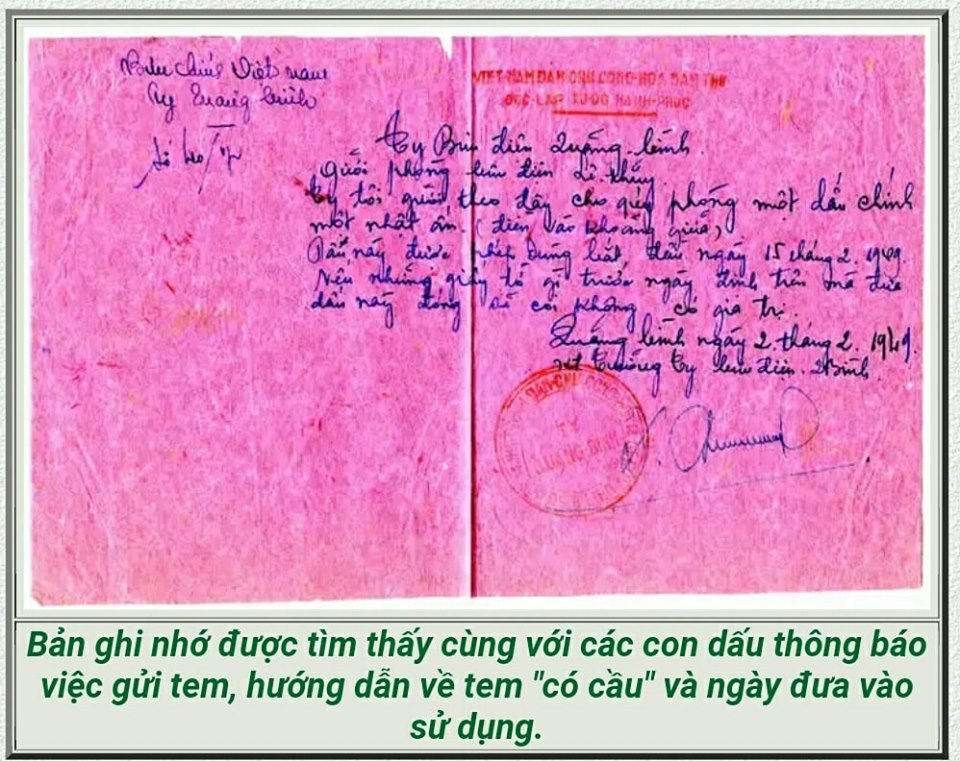 Bưu chính Việt nam
Ty Quảng bình
Số
VIỆT-NAM DÂN CHỦ CỘNG-HÒA DÂN THỨ
ĐỘC-LẬP TỰ-DO HẠNH-PHÚC
Ty Bưu điện Quảng-bình
Gửi phòng bưu điện Lệ-
Ty tôi gửi theo đây cho quý phòng một dấu chính
một nhật ấn. (điền vào khoảng giữa)
Dấu này được phép dùng bắt đầu ngày 15 tháng 2. 1949.
Nếu những giấy tờ gì trước ngày định trên mà đưa
dấu này đóng sẽ coi không có giá trị.
Quảng bình ngày 2. tháng 2. 1949.
Trưởng Ty bưu điện. QBình
TY
QUẢNG BÌNH
Bản ghi nhớ được tìm thấy cùng với các con dấu thông báo
việc gửi tem, hướng dẫn về tem "có cầu" và ngày đưa vào
sử dụng.